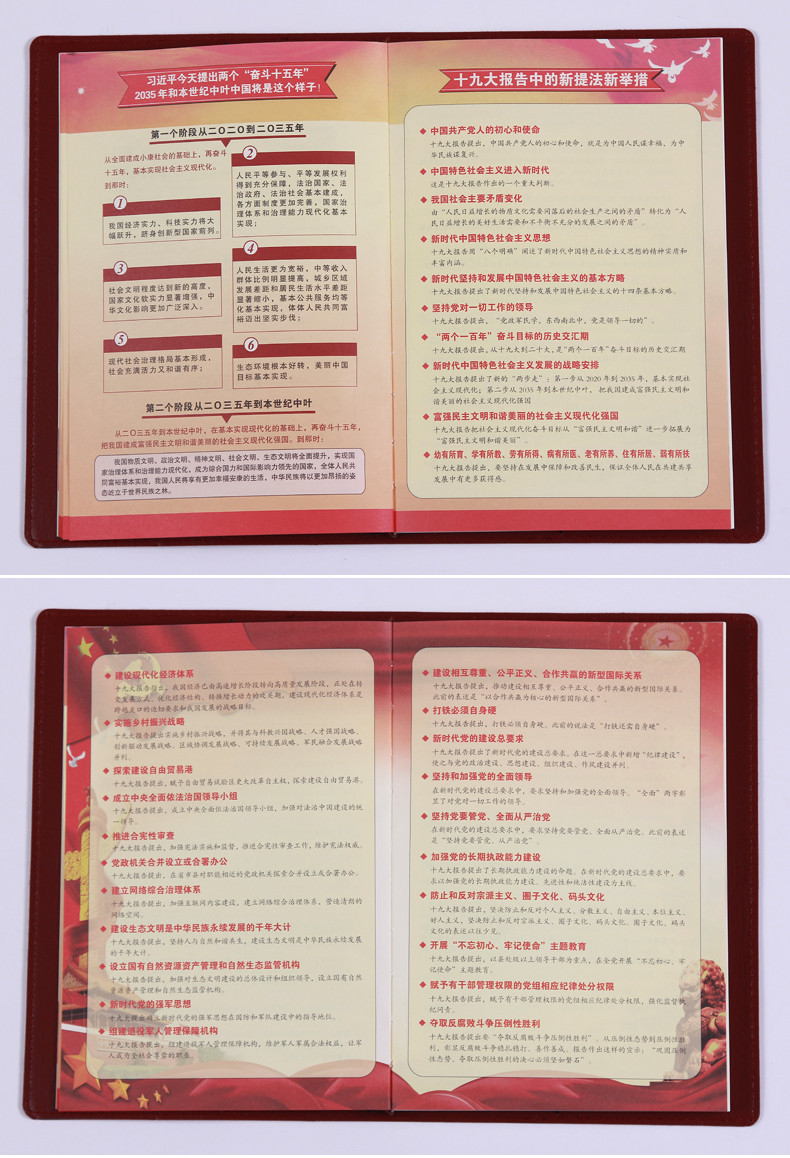 习近平今天提出两个“奋斗十五年”
2035年和本世纪中叶中国将是这个样子！
第一个阶段从二〇二〇到二〇三五年
从全面建成小康社会的基础上，再奋斗
十五年，基本实现社会主义现代化。
到那时：
1
我国经济实力、科技实力将大
幅跃升，跻身创新型国家前列。
2
人民平等参与、平等发展权利
得到充分保障，法治国家、法
治政府、法治社会基本建成，
各方面制度更加完善，国家治
理体系和治理能力现代化基本
实现；
3
社会文明程度达到新的高度，
国家文化软实力显著增强，中
华文化影响更加广泛深入。
4
人民生活更为宽裕，中等收入
群体比例明显提高，城乡区域
发展差距和居民生活水平差距
显著缩小，基本公共服务均等
化基本实现，体体人民共同富
裕迈出坚实步伐；
5
现代社会治理格局基本形成，
社会充满活力又和谐有序；
6
生态环境根本好转，美丽中国
目标基本实现。
第二个阶段从二〇三五年到本世纪中叶
从二〇三五年到本世纪中叶，在基本实现现代化的基础上，再奋斗十五年，
把我国建成富强民主文明和谐美丽的社会主义现代化强国。到那时：
我国物质文明、政治文明、精神文明、社会文明、生态文明将全面提升，实现国
家治理体系和治理能力现代化，成为综合国力和国际影响力领先的国家，全体人民共
同富裕基本实现，我国人民将享有更加幸福安康的生活，中华民族将以更加昂扬的姿
态屹立于世界民族之林。
十九大报告中的新提法新举措
中国共产党人的初心和使命
十九大报告提出，中国共产党人的初心和使命，就是为中国人民谋幸福，为中
华民族谋复兴。
中国特色社会主义进入新时代
这是十九大报告作出的一个重大判断。
我国社会主要矛盾变化
由“人民日益增长的物质文化需要同落后的社会生产之间的矛盾”转化为“人
民日益增长的美好生活需要和不平衡不充分的发展之间的矛盾”。
新时代中国特色社会主义思想
十九大报告用“八个明确”阐述了新时代中国特色社会主义思想的精神实质和
丰富内涵。
新时代坚持和发展中国特色社会主义的基本方略
十九大报告提出了新时代坚持和发展中国特色社会主义的十四条基本方略。
坚持党对一切工作的领导
十九大报告提出，“党政军民学，东西南北中，党是领导一切的”。
“两个一百年”奋斗目标的历史交汇期
十九大报告提出，从十九大到二十大，是“两个一百年”奋斗目标的历史交汇期
新时代中国特色社会主义发展的战略安排
十九大报告提出了新的“两步走”：第一步从2020年到2035年，基本实现社
会主义现代化；第二步从2035年到本世纪中叶，把我国建成富强民主文明和
谐美丽的社会主义现代化强国
富强民主文明和谐美丽的社会主义现代化强国
十九大报告把社会主义现代化奋斗目标从“富强民主文明和谐”进一步拓展为
“富强民主文明和谐美丽”。
幼有所育、学有所教、劳有所得、病有所医、老有所养、住有所居、弱有所扶
十九大报告提出，要坚持在发展中保障和改善民生，保证全体人民在共建共享
发展中有更多获得感。
建设现代化经济体系
十九大报告指出，我国经济已由高速增长阶段转向高质量发展阶段，正处在转
变发展方式、优化经济结构、转换增长动力的攻关期，建设现代化经济体系是
跨越关口的迫切要求和我国发展的战略目标。
实施乡村振兴战略
十九大报告提出实施乡村振兴战略，并将其与科教兴国战略、人才强国战略、
创新驱动发展战略、区域协调发展战略、可持续发展战略、军民融合发展战略
并列。
探索建设自由贸易港
十九大报告提出，赋予自由贸易试验区更大改革自主权，探索建设自由贸易港。
成立中央全面依法治国领导小组
十九大报告提出，成立中央全面依法治国领导小组，加强对法治中国建设的统
一领导。
推进合宪性审查
十九大报告提出，加强宪法实施和监督，推进合宪性审查工作，维护宪法权威。
党政机关合并设立或合署办公
十九大报告提出，在省市县对职能相近的党政机关探索合并设立或合署办公。
建立网络综合治理体系
十九大报告提出，加强互联网内容建设，建立网络综合治理体系，营造清朗的
网络空间。
建设生态文明是中华民族永续发展的千年大计
十九大报告提出，坚持人与自然和谐共生，建设生态文明是中华民族永续发展
的千年大计。
设立国有自然资源资产管理和自然生态监管机构
十九大报告提出，加强对生态文明建设的总体设计和组织领导，设立国有自然
资源资产管理和自然生态监管机构。
新时代党的强军思想
十九大报告提出新时代党的强军思想在国防和军队建设中的指导地位。
组建退役军人管理保障机构
十九大报告提出，组建退役军人管理保障机构，维护军人军属合法权益，让军
人成为全社会尊崇的职业。
建设相互尊重、公平正义、合作共赢的新型国际关系
十九大报告提出，推动建设相互尊重、公平正义、合作共赢的新型国际关系。
此前的表述是“以合作共赢为核心的新型国际关系”。
打铁必须自身硬
十九大报告提出，打铁必须自身硬。此前的说法是“打铁还需自身硬”。
新时代党的建设总要求
十九大报告提出了新时代党的建设总要求。在这一总要求中新增“纪律建设”，
使之与党的政治建设、思想建设、组织建设、作风建设并列。
坚持和加强党的全面领导
在新时代党的建设总要求中，要求坚持和加强党的全面领导。“全面”两字彰
显了对党对一切工作的领导。
坚持党要管党、全面从严治党
在新时代党的建设总要求中，要求坚持党要管党、全面从严治党。此前的表述
是“坚持党要管党、从严治党”。
加强党的长期执政能力建设
十九大报告提出了长期执政能力建设的命题。在新时代党的建设总要求中，要
求以加强党的长期执政能力建设、先进性和纯洁性建设为主线。
防止和反对宗派主义、圈子文化、码头文化
十九大报告提出，坚决防止和反对个人主义、分散主义、自由主义、本位主义、
好人主义，坚决防止和反对宗派主义、圈子文化、码头文化。圈子文化、码头
文化的表述以往少见。
开展“不忘初心、牢记使命”主题教育
十九大报告提出，以县处级以上领导干部为重点，在全党开展“不忘初心、牢
记使命”主题教育。
赋予有干部管理权限的党组相应纪律处分权限
十九大报告提出，赋予有干部管理权限的党组相应纪律处分权限，强化监督执
纪问责。
夺取反腐败斗争压倒性胜利
十九大报告提出要“夺取反腐败斗争压倒性胜利”。从压倒性态势到压倒性胜
利，彰显反腐败斗争稳扎稳打、善作善成。报告作出这样的宣示：“巩固压倒
性态势、夺取压倒性胜利的决心必须坚如磐石”。